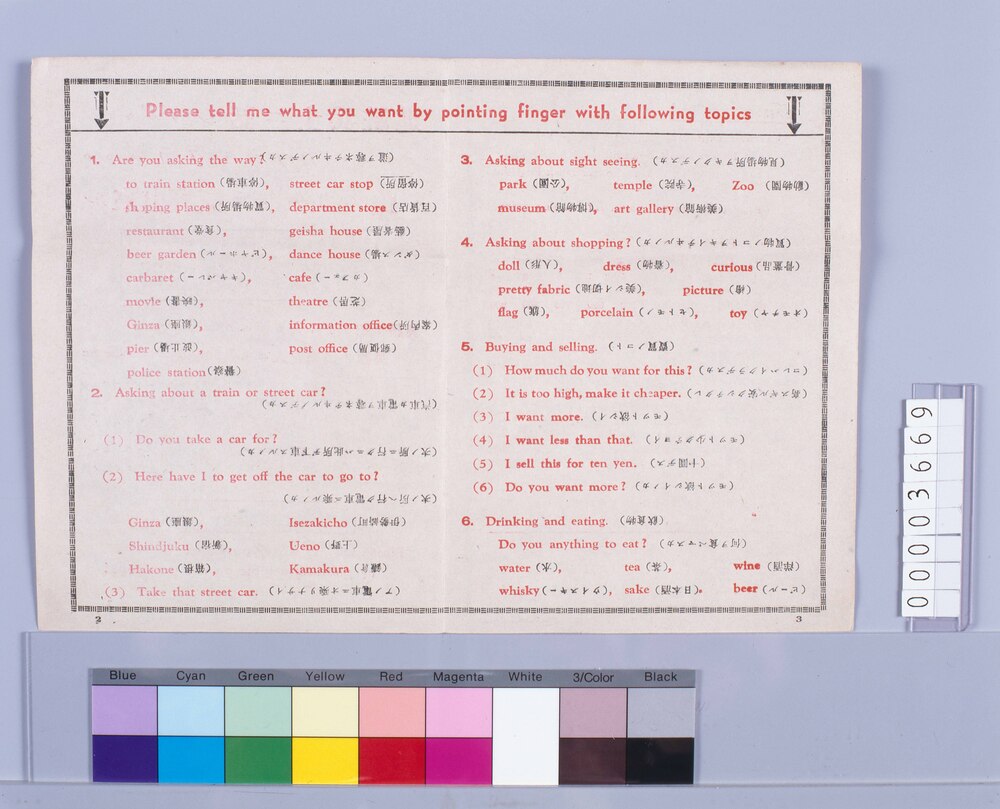 Please tell me what you want by pointing finger with following topics
1. Are you asking the way? (道ヲ尋ネテヰルノデスカ)
to train station (停車場), street car stop (停留所)
places (買物場所), department store (百貨店)
restaurant (食堂), geisha house (藝者屋)
beer garden (ビヤホール), dance house (ダンス場)
carbaret (キャバレー), cafe (カフェー)
movie (映畫), theatre (芝居)
Ginza (銀座), information office (案内所)
pier (波止場), post office (郵便局)
police station (警察)
2. Asking about a train or street car?
(汽車カ電車ヲ尋ネテヰルノデスカ)
(1) Do you take a car for?
(2) Here have I to get off the car to go to?
Ginza (銀座), Isezakicho (伊勢佐町)
Shindjuku (新宿), Ueno (上野)
Hakone (箱根), Kamakura (鎌倉)
(3) Take that street car. (アノ電車ニオ乘リナサイ)
2
3. Asking about sight seeing. (見物場所ヲキクノデスカ)
park (公園), temple (寺院), Zoo (動物園)
museum (博物館), art gallery (美術館)
4. Asking about shopping? (買物ノコトヲキイテヰルノカ)
doll (人形), dress (着物), curious (骨董品)
pretty fabric (美シイ切地), picture (繪)
flag (旗), porcelain (セトモノ), toy (オモチャ)
5. Buying and selling. (賣買ノコト)
(1) How much do you want for this? (コレハイクラデスカ)
(2) It is too high, make it cheaper. (高スギル安クシテクレ)
(3) I want more. (モット欲シイ)
(4) I want less than that. (モット少クテヨイ)
(5) I sell this for ten yen. (十圓デス)
(6) Do you want more? (モット欲シイノカ)
6. Drinking and eating. (飲食物)
Do you anything to eat? (何ヲ食ベマスカ)
water (水), tea (茶), wine (洋酒)
whisky (ウイスキー), sake (日本酒). beer (ビール)
3
0003669
Blue Cyan Green Yellow Red Magenta White 3/Color Black